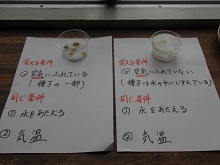 変える条件
② 空気にふれている
(種子の一部)
同じ条件
① 水をあたえる
② 気温
変える条件
② 空気にふれていない
(種子は水の中にしずんでいる)
同じ条件
① 水をあたえる
② 気温